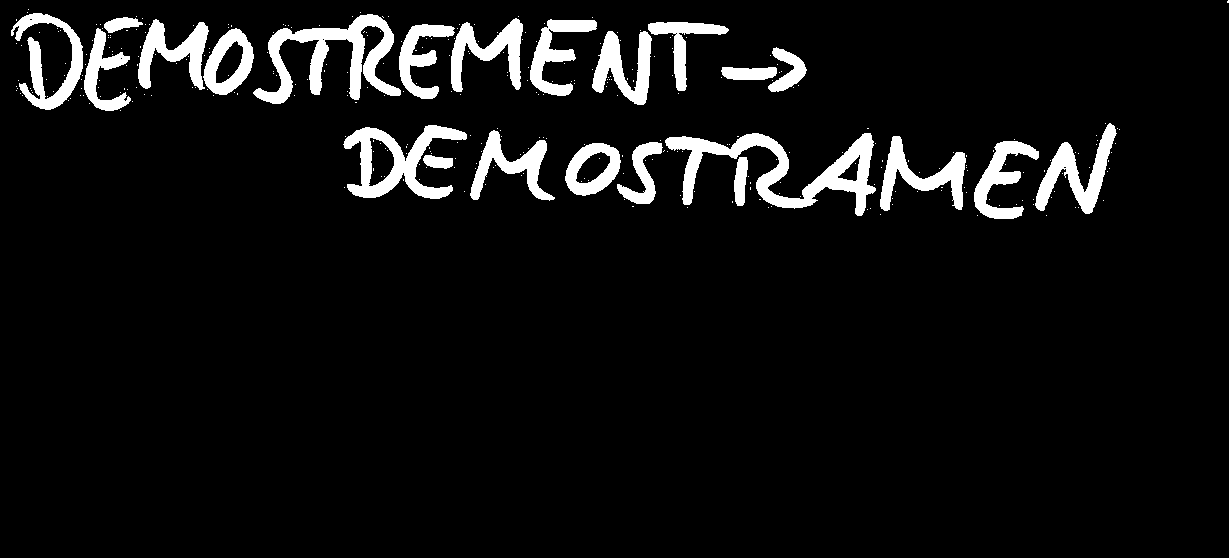 DEMOSTREMENT →
DEMOSTRAMEN